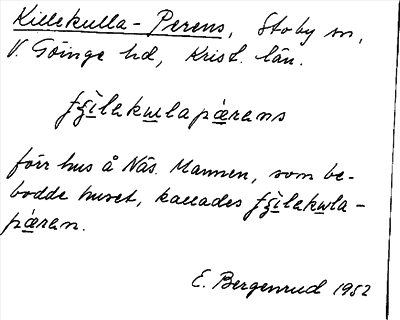 Killekulla - Perens, Stoby sn,
V. Göinge hd, Krist. län.
fʒìlakɯlapǽrans
förr hus å Näs. Mannen, som be-
bodde huset, kallades fʒìlakɯla-
pǽran.
E. Bergenrud 1952